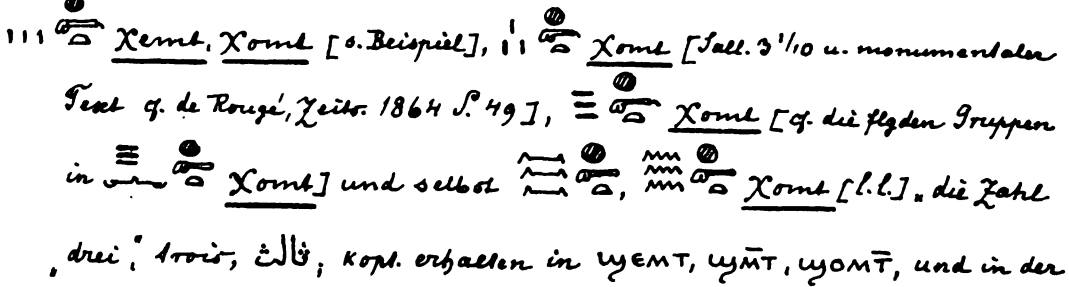 χemt, χomt [s. Beispiel], χomt [Sall. 3 1/10 u. monumentaler
Text cf. de Rougé, Zeits. 1864 S. 49], χomt [cf. die flgden Gruppen
in χomt] und selbst , χomt [l.l.] „die Zahl
„drei“, trois, ثالث, kopt. erhalten in ϣⲉⲙⲧ, ϣⲙ̄ⲧ, ϣⲟⲙⲧ̄, und in der